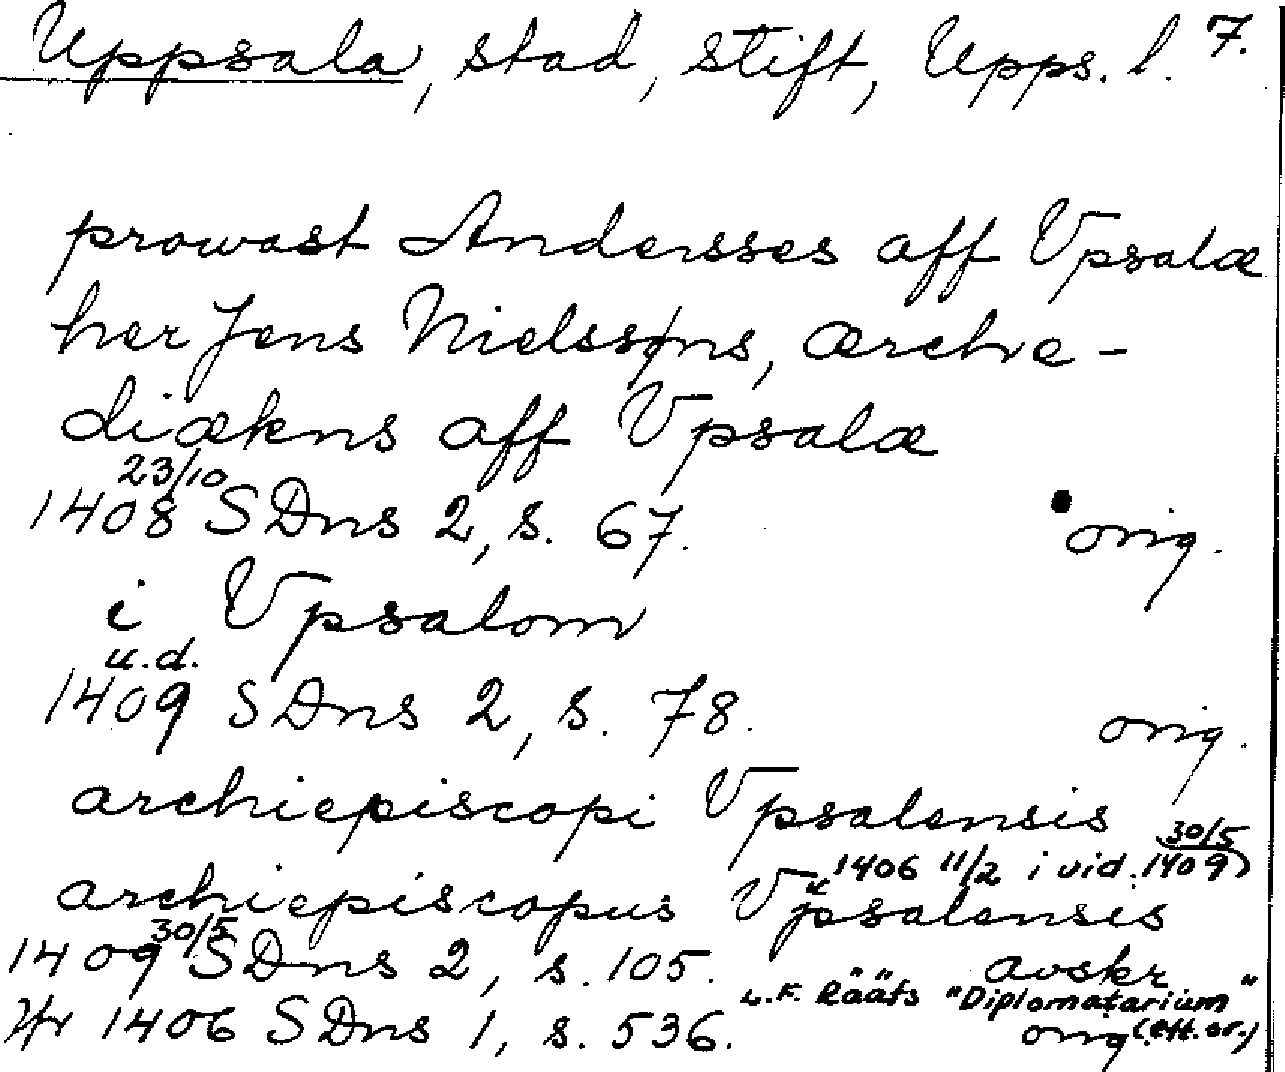 Uppsala, stad, stift, Upps. l. 7.
prowast Andersses aff Vpsalæ
her Jens Nielssøns, ærche-
diækns aff Vpsalæ
23/10
1408 SDns 2, s. 67. orig.
i Vpsalom
u.d.
1409 SDns 2, s. 78. orig.
archiepiscopi Vpsalensis
1406 11/2 i vid. 1409 30/5
archiepiscopus Vpsalensis
30/5
1409 SDns 2, s. 105. avskr
L.F. Rääfs "Diplomatarium"
1406 SDns 1, s. 536. orig. (eft. or.)